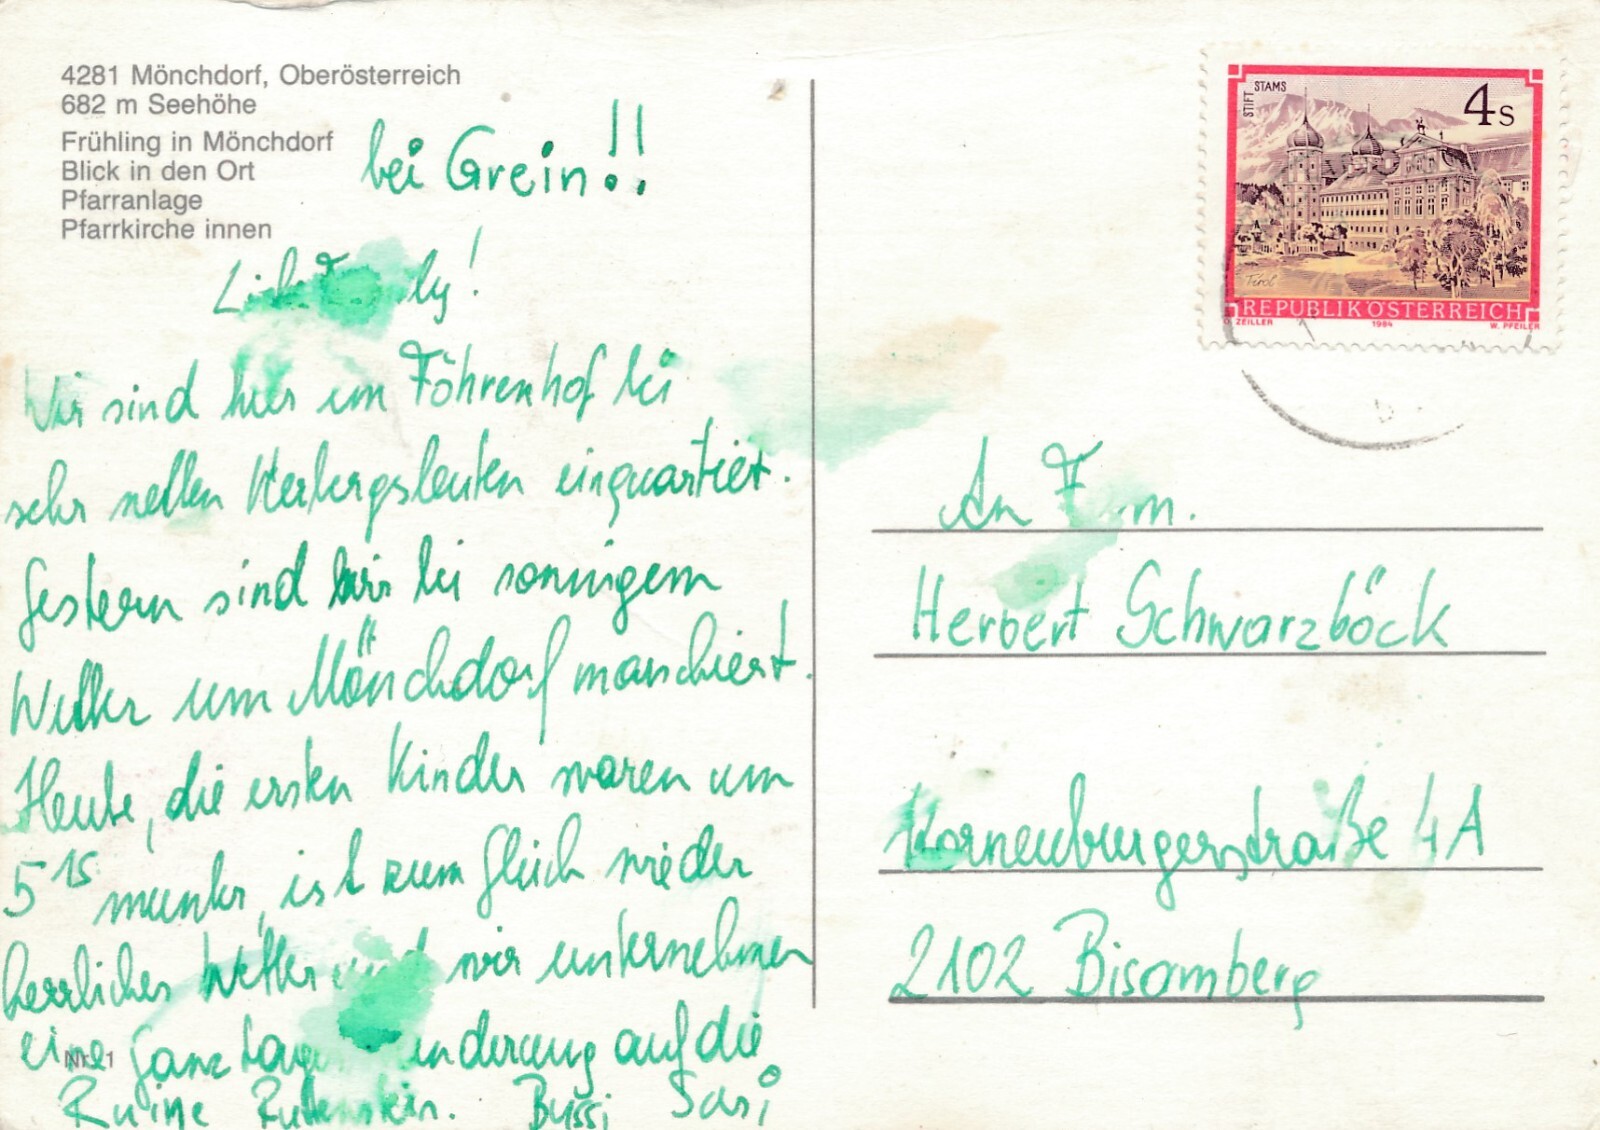 4281 Mönchdorf, Oberösterreich
682 m Seehöhe
Frühling in Mönchdorf
Blick in den Ort
Pfarranlage
Pfarrkirche innen
bei Grein!!
Wir sind hier im Föhrenhof bei
sehr netten Herbergsleuten einquartiert.
Gestern sind wir bei sonnigem
Wetter um Mönchdorf marschiert.
Heute, die ersten Kinder waren um
5 15 munter, ist zum Glück wieder
herrliches Wetter und wir unternehmen
eine Ganztages anderung auf die
Ruine Ruttenstein. Bussi Sasi
Nr. 1
STIFT STAMS
4 S
Tirol
REPUBLIK ÖSTERREICH
O. ZEILLER 1984 W. PFEILER
An Fam.
Herbert Schwarzböck
Korneuburgerstraße 4A
2102 Bisamberg